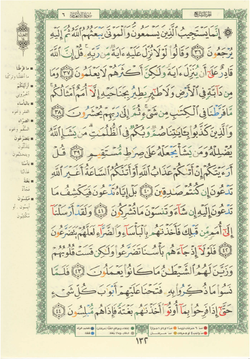 إِنَّمَا يَسْتَجِيبُ الَّذِينَ يَسْمَعُونَ وَالْمَوْتَىٰ يَبْعَثُهُمُ اللَّهُ ثُمَّ إِلَيْهِ
يُرْجَعُونَ ٣٦ وَقَالُوا لَوْلَا نُزِّلَ عَلَيْهِ آيَةٌ مِّن رَّبِّهِ قُلْ إِنَّ اللَّهَ
قَادِرٌ عَلَىٰ أَن يُنَزِّلَ آيَةً وَلَٰكِنَّ أَكْثَرَهُمْ لَا يَعْلَمُونَ ٣٧ وَمَا
مِن دَابَّةٍ فِي الْأَرْضِ وَلَا طَائِرٍ يَطِيرُ بِجَنَاحَيْهِ إِلَّا أُمَمٌ أَمْثَالُكُم
مَّا فَرَّطْنَا فِي الْكِتَابِ مِن شَيْءٍ ثُمَّ إِلَىٰ رَبِّهِمْ يُحْشَرُونَ ٣٨
وَالَّذِينَ كَذَّبُوا بِآيَاتِنَا صُمٌّ وَبُكْمٌ فِي الظُّلُمَاتِ مَن يَشَإِ اللَّهُ
يُضْلِلْهُ وَمَن يَشَأْ يَجْعَلْهُ عَلَىٰ صِرَاطٍ مُّسْتَقِيمٍ ٣٩
قُلْ أَرَأَيْتَكُمْ إِنْ أَتَاكُمْ عَذَابُ اللَّهِ أَوْ أَتَتْكُمُ السَّاعَةُ أَغَيْرَ اللَّهِ
تَدْعُونَ إِن كُنتُمْ صَادِقِينَ ٤٠ بَلْ إِيَّاهُ تَدْعُونَ فَيَكْشِفُ مَا
تَدْعُونَ إِلَيْهِ إِن شَاءَ وَتَنسَوْنَ مَا تُشْرِكُونَ ٤١ وَلَقَدْ أَرْسَلْنَا
إِلَىٰ أُمَمٍ مِّن قَبْلِكَ فَأَخَذْنَاهُم بِالْبَأْسَاءِ وَالضَّرَّاءِ لَعَلَّهُمْ يَتَضَرَّعُونَ
٤٢ فَلَوْلَا إِذْ جَاءَهُم بَأْسُنَا تَضَرَّعُوا وَلَٰكِن قَسَتْ قُلُوبُهُمْ
وَزَيَّنَ لَهُمُ الشَّيْطَانُ مَا كَانُوا يَعْمَلُونَ ٤٣ فَلَمَّا
نَسُوا مَا ذُكِّرُوا بِهِ فَتَحْنَا عَلَيْهِمْ أَبْوَابَ كُلِّ شَيْءٍ
حَتَّىٰ إِذَا فَرِحُوا بِمَا أُوتُوا أَخَذْنَاهُم بَغْتَةً فَإِذَا هُم مُّبْلِسُونَ ٤٤
١٣٢